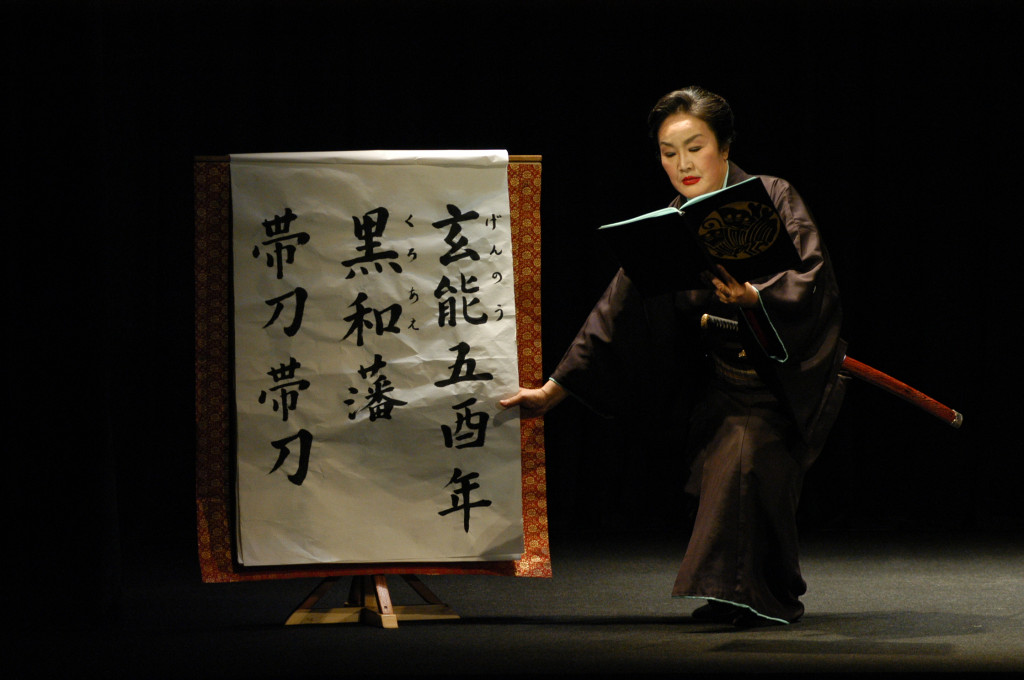 玄能五酉年
げんのう
黒和藩
くろあえ
帯刀帯刀